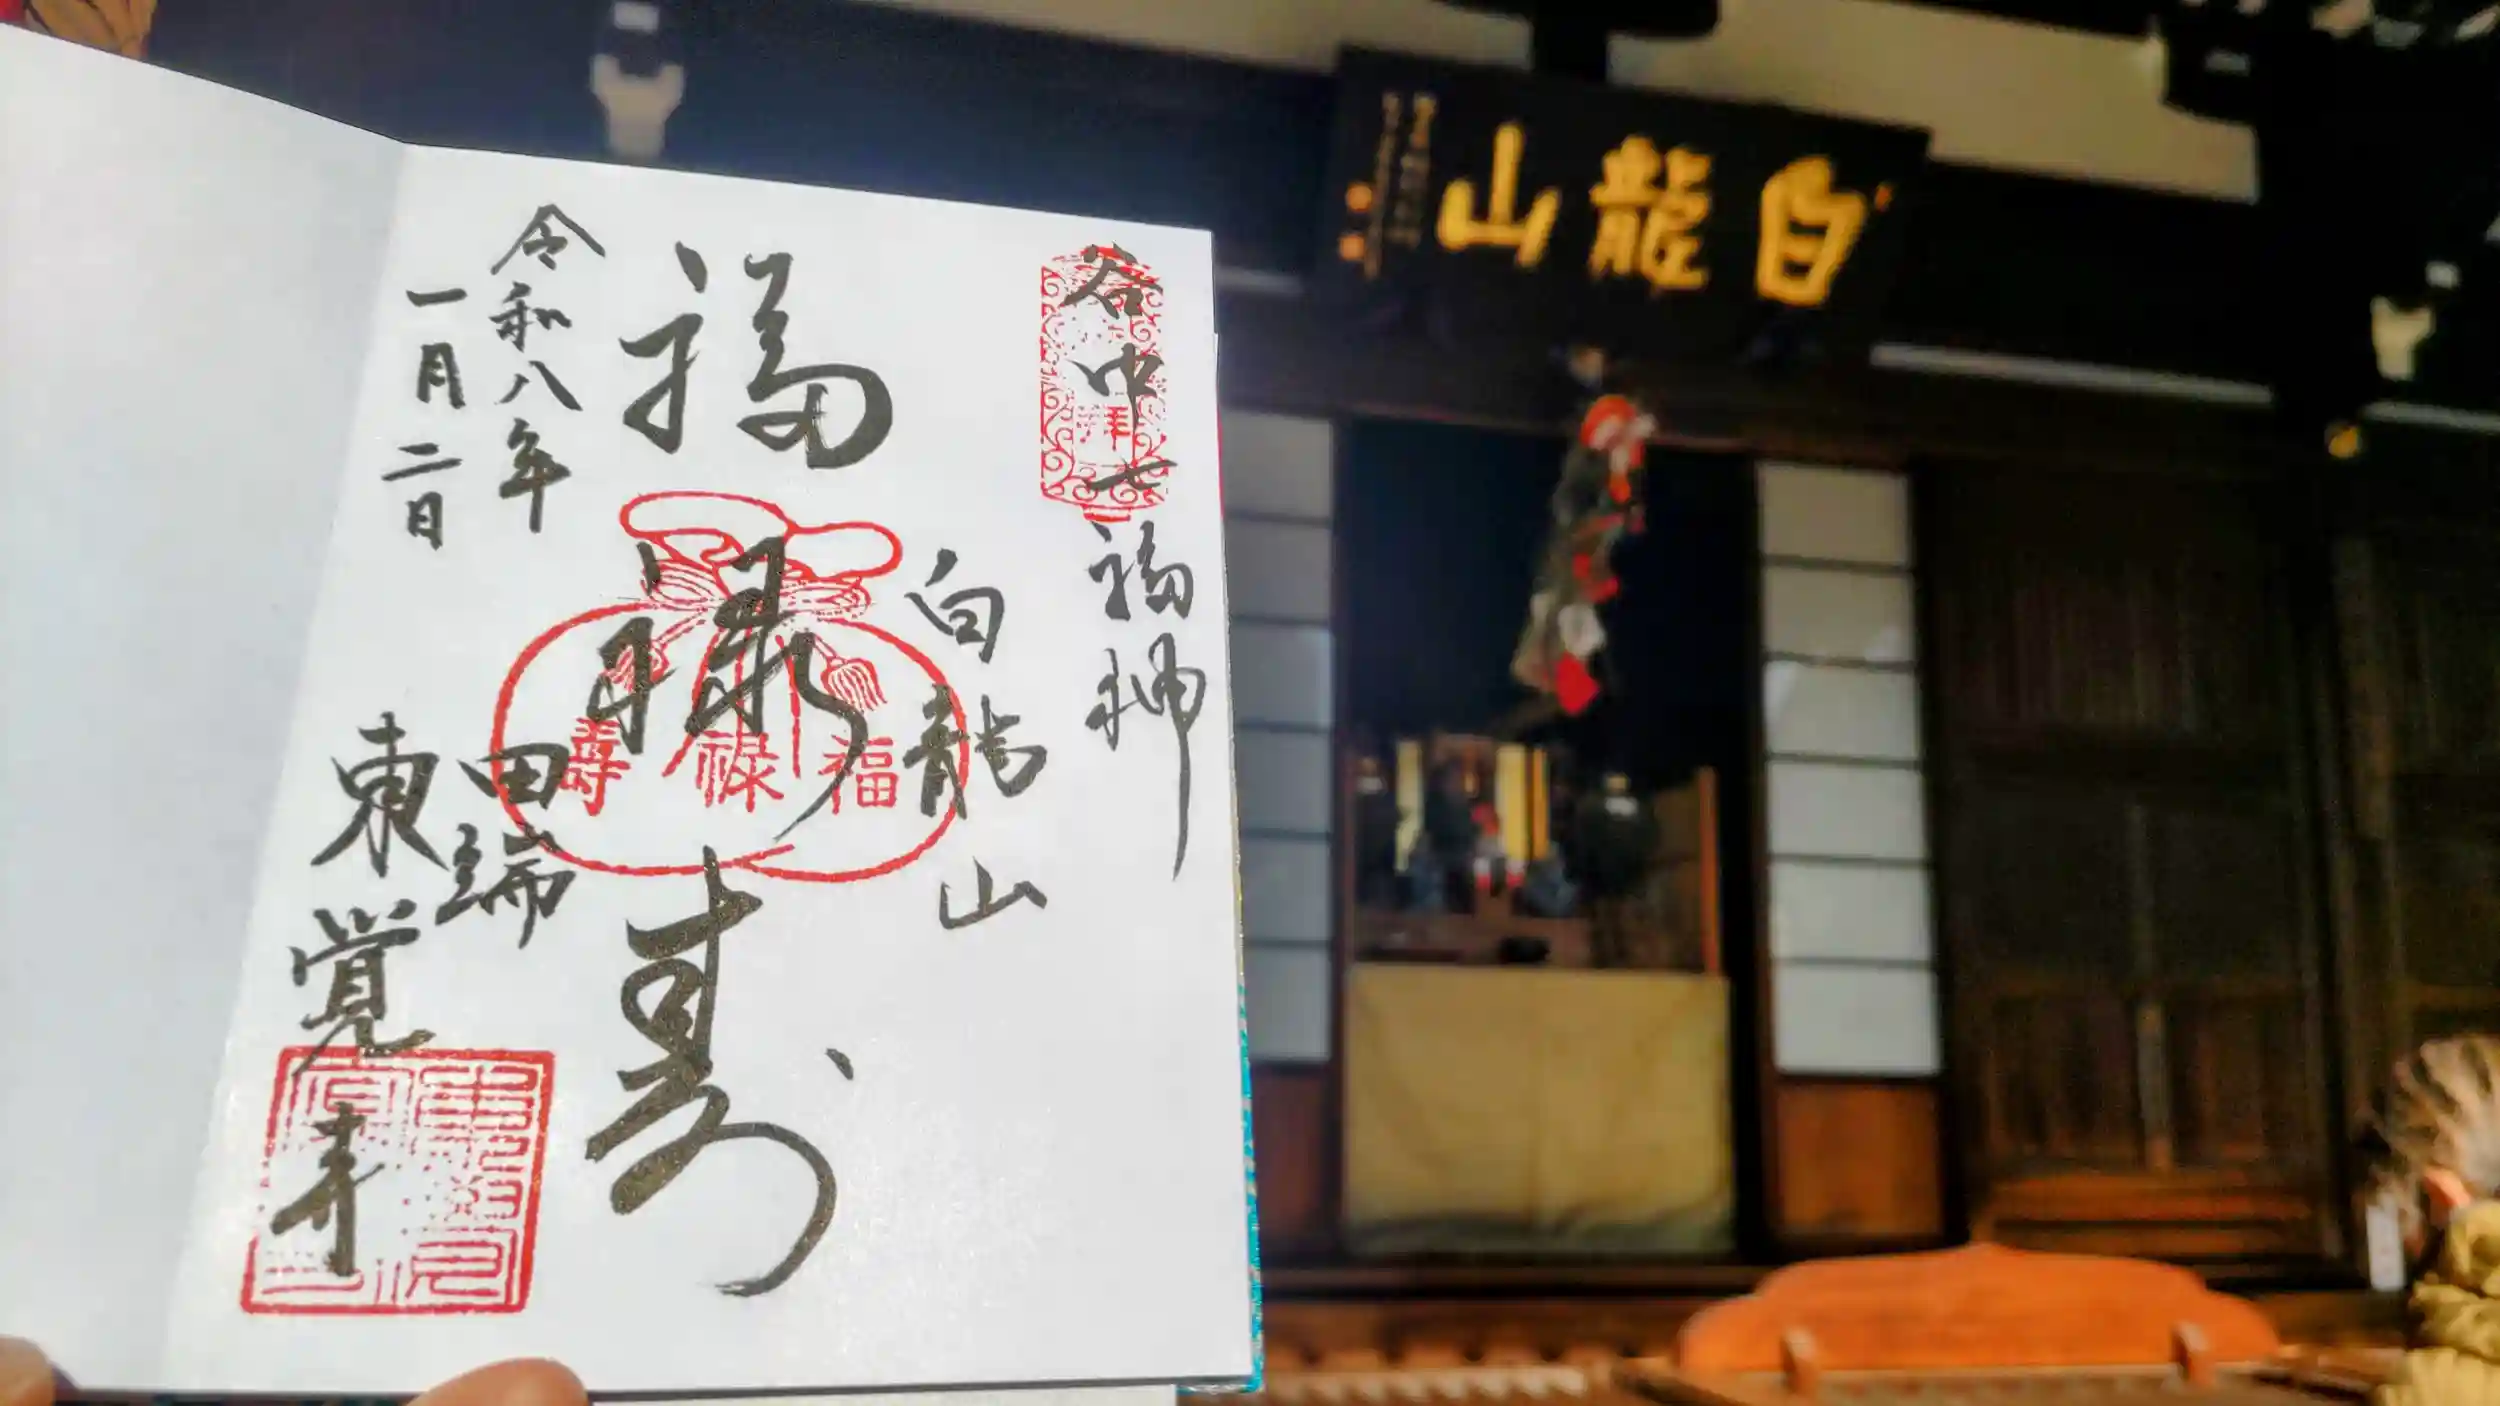 谷中七福神
白龍山
福禄寿
福
禄
壽
令和八年
一月二日
田端
東覚寺
白龍山